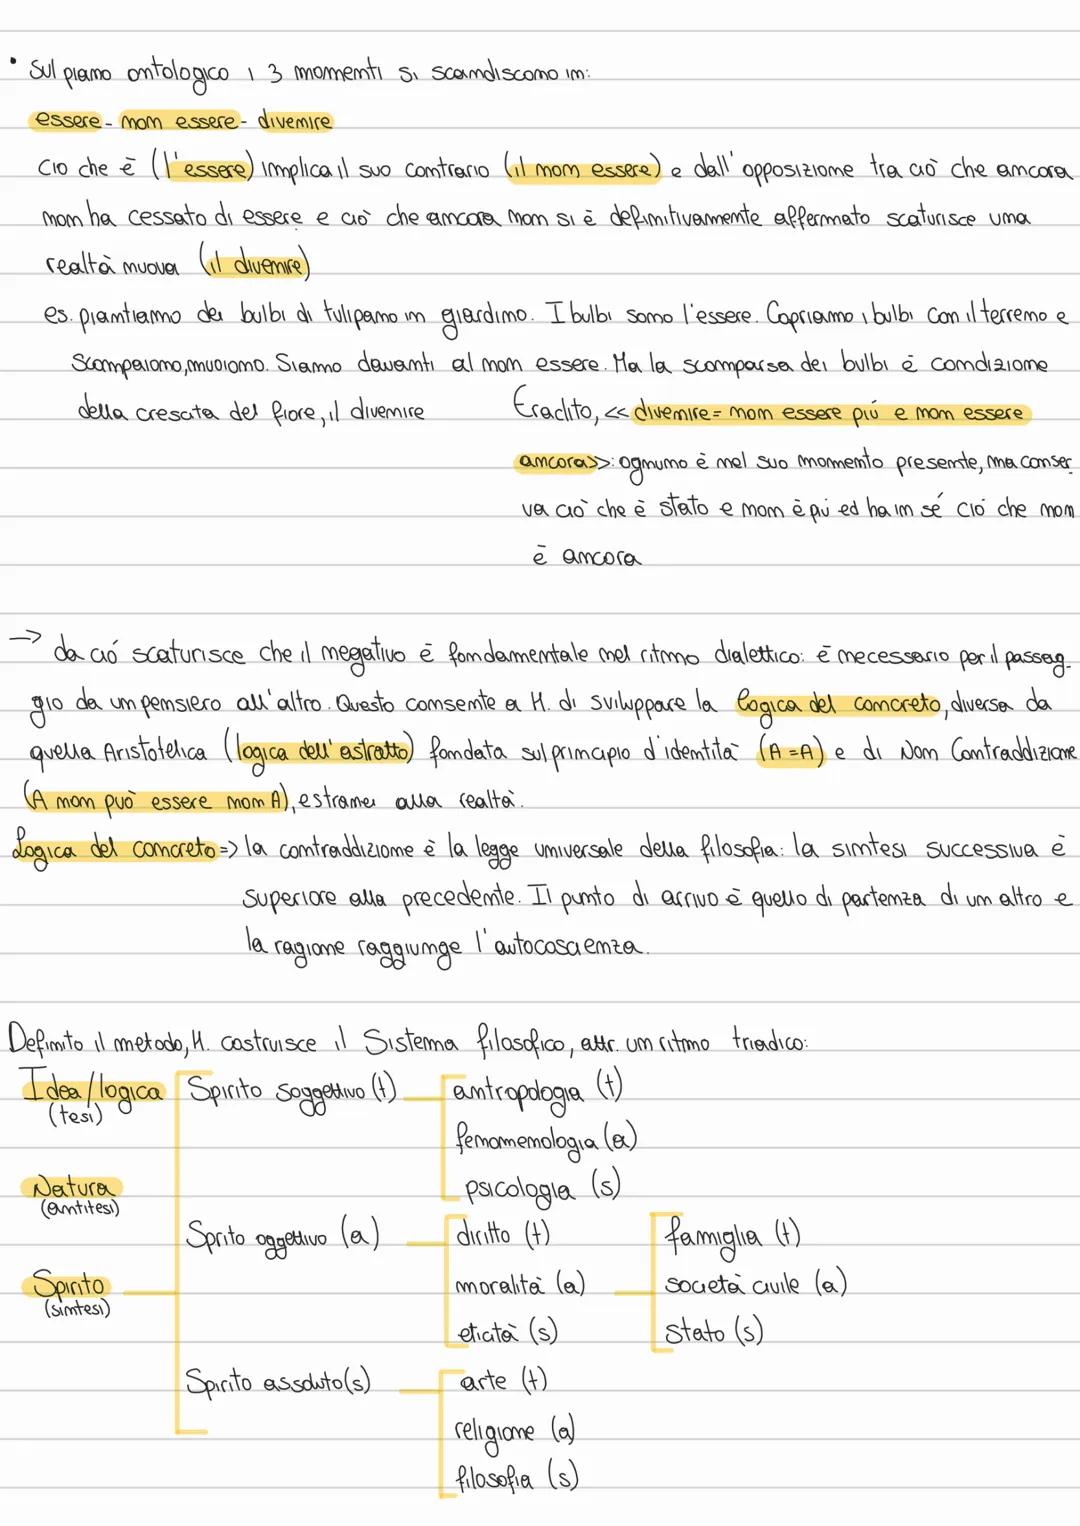 • Sul piano ontologico i 3 momenti si scandiscono in:
essere - non essere - divenire
Ciò che è (l'essere) implica il suo contrario (il non essere) e dall'opposizione tra ciò che ancora
non ha cessato di essere e ciò che ancora non si è definitivamente affermato scaturisce una
realtà nuova (il divenire)
es. piantiamo dei bulbi di tulipano in giardino. I bulbi sono l'essere. Copriamo i bulbi con il terreno e
scompaiono, muoiono. Siamo davanti al non essere. Ma la scomparsa dei bulbi è condizione
della crescita del fiore, il divenire
Eraclito, << divenire = non essere più e non essere
ancora>>: ognuno è nel suo momento presente, ma conser
va ciò che è stato e non è più ed ha in sé ciò che non
è ancora
-> da ció scaturisce che il negativo è fondamentale nel ritmo dialettico: è necessario per il passag-
gio da un pensiero all'altro. Questo consente a H. di sviluppare la logica del concreto, diversa da
quella Aristotelica (logica dell'astratto) fondata sul principio d'identità (A=A) e di Non Contraddizione
(A non può essere non A), estranei alla realtà.
Logica del concreto => la contraddizione è la legge universale della filosofia: la sintesi successiva è
superiore alla precedente. Il punto di arrivo è quello di partenza di un altro e
la ragione raggiunge l'autocoscienza.
Definito il metodo, H. costruisce il Sistema filosofico, attr. un ritmo triadico:
Idea/logica Spirito soggettivo (t) antropologia (t)
(tesi)
fenomenologia (a)
Natura psicologia (s)
(antitesi)
Sprito oggettivo (a) diritto (t) famiglia (t)
Spirito moralità (a) società civile (a)
(sintesi)
eticità (s) stato (s)
Spirito assoluto (s) arte (t)
religione (a)
filosofia (s)